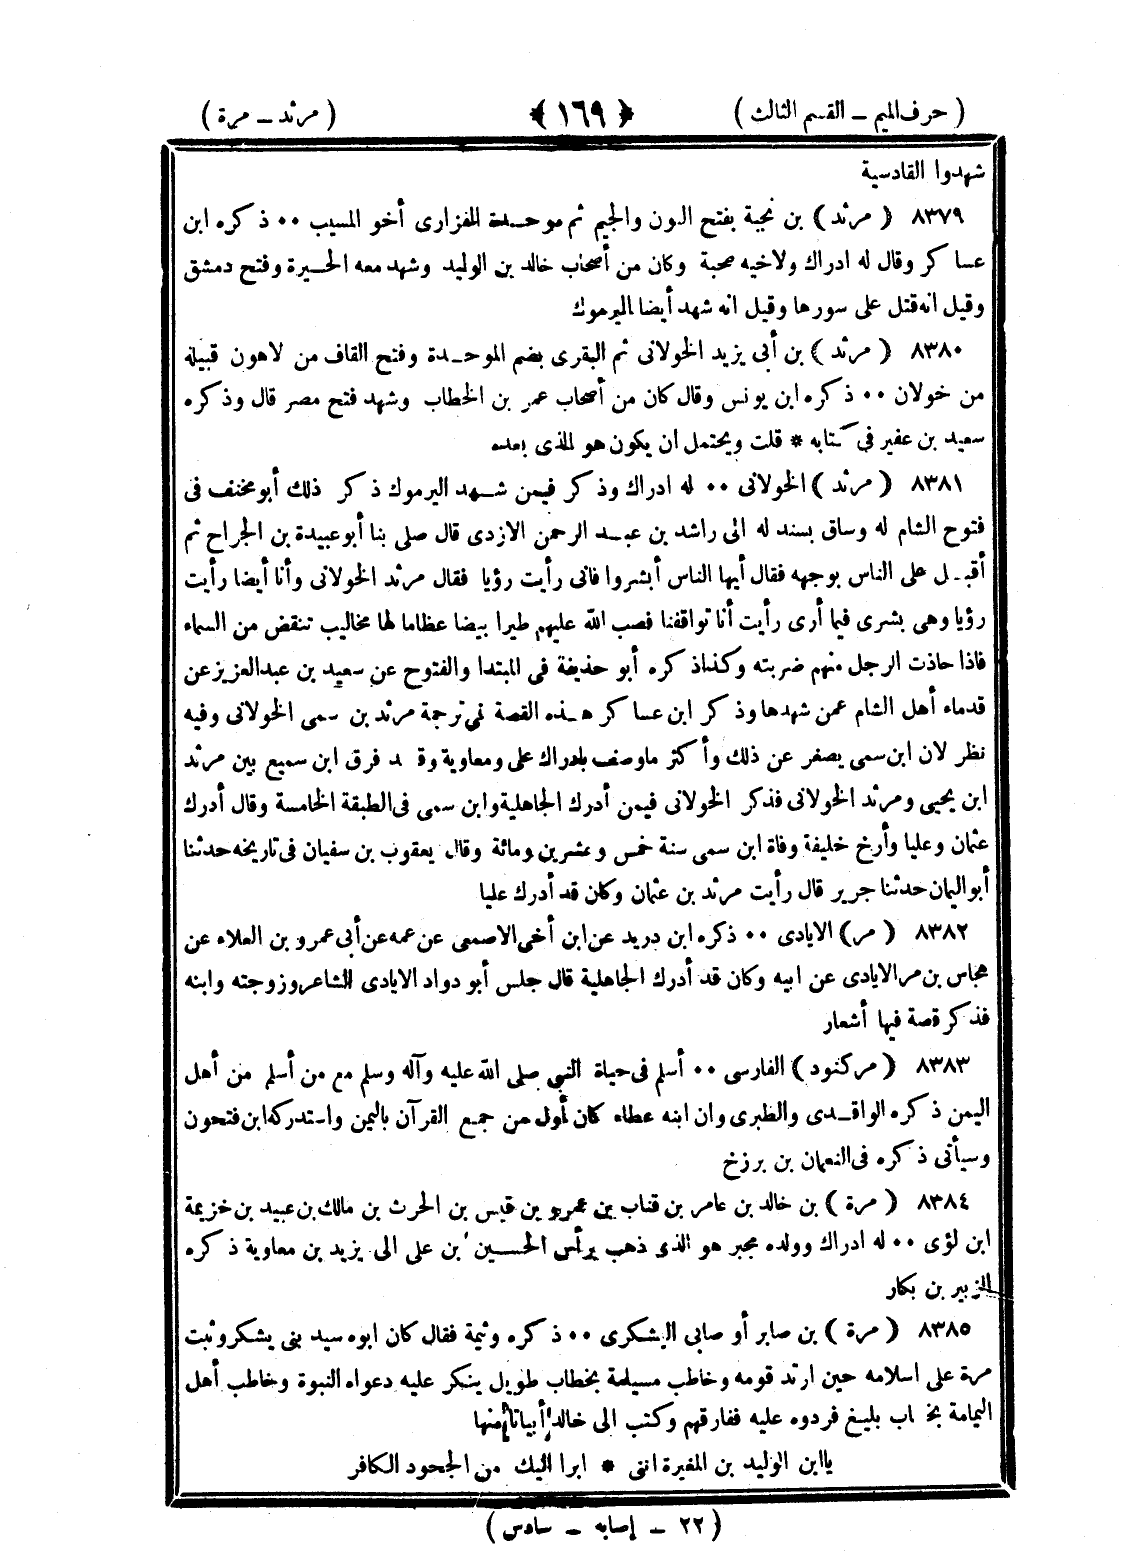 ( حرف الميم – القسم الثالث ) ﴿ ١٦٩ ﴾ ( مرثد – مرة )
شهدوا القادسية
٨٣٧٩ ( مرثد ) بن نجبة بفتح النون والجيم ثم موحدة الفزارى أخو المسيب ٠٠ ذكره ابن
عساكر وقال له ادراك ولاخيه صحبة وكان من أصحاب خالد بن الوليد وشهد معه الحيرة وفتح دمشق
وقيل انه قتل على سورها وقيل انه شهد أيضا اليرموك
٨٣٨٠ ( مرثد ) بن أبي يزيد الخولانى ثم البقرى بضم الموحدة وفتح القاف من لاهون قبيلة
من خولان ٠٠ ذكره ابن يونس وقال كان من أصحاب عمر بن الخطاب وشهد فتح مصر قال وذكره
سعيد بن عفير فى كتابه * قلت ويحتمل ان يكون هو الذى بعده
٨٣٨١ ( مرثد ) الخولانى ٠٠ له ادراك وذكر فيمن شهد اليرموك ذكر ذلك أبو مخنف فى
فتوح الشام له وساق بسند له الى راشد بن عبد الرحمن الازدى قال صلى بنا أبو عبيدة بن الجراح ثم
أقبل على الناس بوجهه فقال أيها الناس أبشروا فانى رأيت رؤيا فقال مرثد الخولانى وأنا أيضا رأيت
رؤيا وهى بشرى فيما أرى رأيت أنا تواقفنا فصب الله عليهم طيرا بيضا عظاما لها مخاليب تنقض من السماء
فاذا حاذت الرجل منهم ضربته وكذا ذكره أبو حذيفة فى المبتدا والفتوح عن سعيد بن عبدالعزيز عن
قدماء أهل الشام عمن شهدها وذكر ابن عساكر هذه القصة فى ترجمة مرثد بن سمى الخولانى وفيه
نظر لان ابن سمى يصغر عن ذلك وأكثر ما وصف بادراك على ومعاوية وقد فرق ابن سميع بين مرثد
ابن يحيى ومرثد الخولانى فذكر الخولانى فيمن أدرك الجاهلية وابن سمى فى الطبقة الخامسة وقال أدرك
عثمان وعليا وأرخ خليفة وفاة ابن سمى سنة خمس وعشرين ومائة وقال يعقوب بن سفيان فى تاريخه حدثنا
أبو اليمان حدثنا جرير قال رأيت مرثد بن عثمان وكان قد أدرك عليا
٨٣٨٢ ( مر ) الايادى ٠٠ ذكره ابن دريد عن ابن أخى الاصمعى عن عمه عن أبى عمرو بن العلاء عن
هجاس بن مر الايادى عن ابيه وكان قد أدرك الجاهلية قال جلس أبو دواد الايادى الشاعر وزوجته وابنه
فذكر قصة فيها أشعار
٨٣٨٣ ( مركنود ) الفارسى ٠٠ أسلم فى حياة النبي صلى الله عليه وآله وسلم مع من أسلم من أهل
اليمن ذكره الواقدى والطبرى وان ابنه عطاء كان أول من جمع القرآن باليمن واستدركه ابن فتحون
وسيأتى ذكره فى النعمان بن برزخ
٨٣٨٤ ( مرة ) بن خالد بن عامر بن قناب بن عمرو بن قيس بن الحرث بن مالك بن عبيد بن خزيمة
ابن لؤى ٠٠ له ادراك وولده مجبر هو الذى ذهب برأس الحسين بن على الى يزيد بن معاوية ذكره
الزبير بن بكار
٨٣٨٥ ( مرة ) بن صابر أو صابى اليشكرى ٠٠ ذكره وثيمة فقال كان ابوه سيد بنى يشكر وثبت
مرة على اسلامه حين ارتد قومه وخاطب مسيلمة بخطاب طويل ينكر عليه دعواه النبوة وخاطب أهل
اليمامة بخطاب بليغ فردوه عليه ففارقهم وكتب الى خالد أبياتا منها
يا ابن الوليد بن المغيرة اننى * ابرا اليك من الجحود الكافر
( ٢٢ – إصابه – سادس )